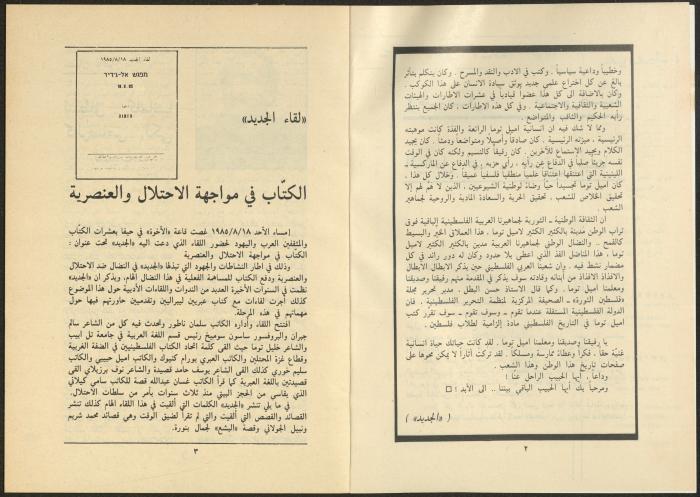 وخطيباً وداعية سياسياً . وكتب في الادب والنقد والمسرح . وكان يتكلم بتأثر
بالغ عن كل اختراع علمي جديد يوثق سيادة الانسان على هذا الكوكب .
وكان بالاضافة الى كل هذا عضوا قيادياً في عشرات الاطارات والهيئات
الشعبية والثقافية والاجتماعية . وفي كل هذه الاطارات ، كان الجميع ينتظر
رأيه الحكيم والثاقب والمتواضع .
ومما لا شك فيه ان انسانية اميل توما الرائعة والفذة كانت موهبته
الرئيسية ، ميزته الرئيسية . كان صادقاً وأصيلاً ومتواضعاً ودمثا . كان يجيد
الكلام ويجيد الاستماع للآخرين . كان رفيقاً كالنسيم ولكنه كان في الوقت
نفسه جريئاً صلباً في الدفاع عن رأيه ، رأي حزبه ، في الدفاع عن الماركسية ـ
اللينينية التي اعتنقها اعتناقا علميا منطقياً فلسفياً عميقاً . وخلال كل هذا ،
كان اميل توما تجسيدا حياً وضاءً لوطنية الشيوعيين ، الذين لا هَمَّ لهم إلا
تحقيق الخلاص للشعب ، تحقيق الحرية والسعادة المادية والروحية لجماهير
الشعب .
ان الثقافة الوطنية ـ الثورية لجماهيرنا العربية الفلسطينية الباقية فوق
تراب الوطن مدينة بالكثير الكثير لاميل توما . هذا العملاق الخير والبسيط
كالقمح .. والنضال الوطني لجماهيرنا العربية مدين بالكثير الكثير لاميل
توما ، هذا المناضل الفذ الذي اعطى بلا حدود وكان له دور رائد في كل
مضمار نشط فيه . وإن شعبنا العربي الفلسطيني حين يذكر الابطال الابطال
والافذاذ الافذاذ من أبنائه وقادته سوف يذكر في المقدمة منهم رفيقنا وصديقنا
ومعلمنا اميل توما . وكما قال الاستاذ حسن البطل ، مدير تحرير مجلة
«فلسطين الثورة» ـ الصحيفة المركزية لمنظمة التحرير الفلسطينية ، فان
الدولة الفلسطينية المستقلة عندما تقوم ـ وسوف تقوم ـ سوف تقرر كتب
اميل توما في التاريخ الفلسطيني مادة إلزامية لطلاب فلسطين .
يا رفيقنا وصديقنا ومعلمنا اميل توما . لقد كانت حياتك حياة انسانية
غنية حقا ، فكرا وعطاءً وممارسة ومسلكا . لقد تركت آثارا لا يمكن محوها على
صفحات تاريخ هذا الوطن وهذا الشعب .
وداعاً ، أيها الحبيب الراحل عنا !
ومرحباً بك أيها الحبيب الباقي بيننا .. الى الأبد !
( «الجديد» )
٢
لقاء الجديد ١٩٨٥/٨/١٨
מפגש אל-ג׳דיד
18.8.85
«لقاء الجديد»
الكتّاب في مواجهة الاحتلال والعنصرية
إمساء الأحد ١٩٨٥/٨/١٨ غصت قاعة «الأخوة» في حيفا بعشرات الكتّاب
والمثقفين العرب واليهود لحضور اللقاء الذي دعت اليه «الجديد» تحت عنوان :
الكتّاب في مواجهة الاحتلال والعنصرية
وذلك في إطار النشاطات والجهود التي تبذلها «الجديد» في النضال ضد الاحتلال
والعنصرية ودفع الكتاب للمساهمة الفعلية في هذا النضال الهام . ويذكر ان «الجديد»
نظمت في السنوات الأخيرة العديد من الندوات واللقاءات الأدبية حول هذا الموضوع
كذلك أجرت لقاءات مع كتاب عبريين ليبراليين وتقدميين حاورتهم فيها حول
مهماتهم في هذه المرحلة.
افتتح اللقاء وأداره الكاتب سلمان ناطور وتحدث فيه كل من الشاعر سالم
جبران والبروفسور ساسون سوميخ رئيس قسم اللغة العربية في جامعة تل ابيب
والشاعر خليل توما حيث القى كلمة اتحاد الكتاب الفلسطينيين في الضفة الغربية
وقطاع غزة المحتلين والكاتب العبري يورام كنيوك والكاتب اميل حبيبي والكاتب
سليم خوري كذلك القى الشاعر يوسف حامد قصيدة والشاعر نوف برزيلاي القى
قصيدتين باللغة العبرية كما قرأ الكاتب غسان عبدالله قصة للكاتب سامي كيلاني
الذي يقاسي من الحجز البيتي منذ ثلاث سنوات بأمر من سلطات الاحتلال.
في ما يلي تنشر «الجديد» الكلمات التي ألقيت في هذا اللقاء الهام كذلك تنشر
القصائد والقصص التي ألقيت والتي لم تقرأ لضيق الوقت وهي قصائد محمد شريم
ونبيل الجولاني وقصة «البشع» لجمال بنورة.
٣